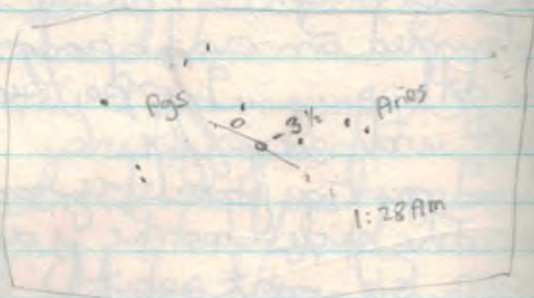 Pgs
-3½
Aries
1:28 Am